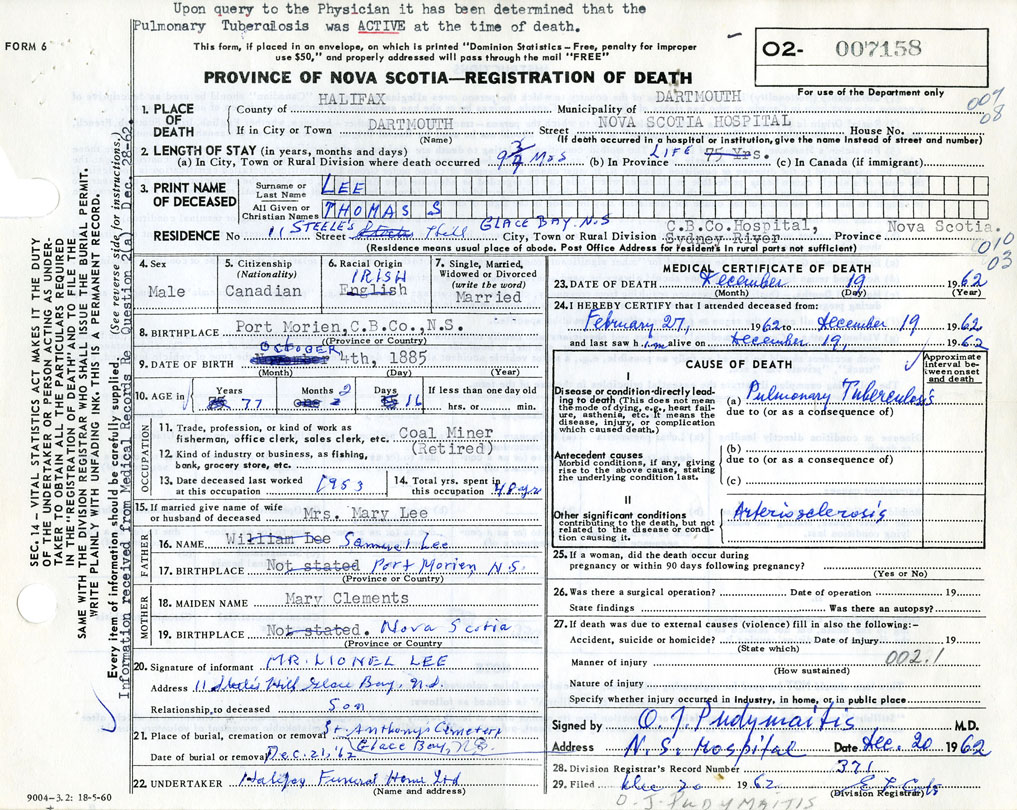 Upon query to the Physician it has been determined that the
Pulmonary Tuberalosis was ACTIVE at the time of death.
FORM 6
This form, if placed in an envelope, on which is printed "Dominion Statistics—Free, penalty for improper
use $50," and properly addressed will pass through the mail "FREE"
O2- 007158
For use of the Department only
PROVINCE OF NOVA SCOTIA—REGISTRATION OF DEATH
009
08
1. PLACE OF DEATH
County of HALIFAX Municipality of DARTMOUTH
If in City or Town DARTMOUTH Street NOVA SCOTIA HOSPITAL House No.
(Name) (If death occurred in a hospital or institution, give the name instead of street and number)
2. LENGTH OF STAY (in years, months and days)
(a) In City, Town or Rural Division where death occurred 9 3/7 Mos (b) In Province LIFE 75 Yrs. (c) In Canada (if immigrant)
3. PRINT NAME OF DECEASED
Surname or Last Name LEE
All Given or Christian Names THOMAS S
RESIDENCE No 11 STEELE'S Street Hill City, Town or Rural Division GLACE BAY N.S C.B.Co.Hospital, Sydney River Province Nova Scotia.
(Residence means usual place of abode. Post Office Address for residents in rural parts not sufficient)
010
03
4. Sex
Male
5. Citizenship (Nationality)
Canadian
6. Racial Origin
IRISH
English
7. Single, Married, Widowed or Divorced (write the word)
Married
8. BIRTHPLACE Port Morien,C.B.Co.,N.S.
(Province or Country)
9. DATE OF BIRTH OCTOBER November 4th, 1885
(Month) (Day) (Year)
10. AGE in Years 77 Months 2 Days 16 If less than one day old
hrs. or min.
OCCUPATION
11. Trade, profession, or kind of work as fisherman, office clerk, sales clerk, etc. Coal Miner
(Retired)
12. Kind of industry or business, as fishing, bank, grocery store, etc.
13. Date deceased last worked at this occupation 1953
14. Total yrs. spent in this occupation 48 yrs
15. If married give name of wife or husband of deceased Mrs. Mary Lee
FATHER
16. NAME William Lee Samuel Lee
17. BIRTHPLACE Not stated Port Morien N.S.
(Province or Country)
MOTHER
18. MAIDEN NAME Mary Clements
19. BIRTHPLACE Not stated. Nova Scotia
(Province or Country
20. Signature of informant MR. LIONEL LEE
Address 11 Steele's Hill Glace Bay, N.S.
Relationship to deceased Son
21. Place of burial, cremation or removal St. Anthony's Cemetery
Glace Bay, N.S.
Date of burial or removal Dec. 21, '62
22. UNDERTAKER Halifax Funeral Home Ltd
(Name and address)
9004-3.2: 18-5-60
MEDICAL CERTIFICATE OF DEATH
23. DATE OF DEATH December 19 1962
(Month) (Day) (Year)
24. I HEREBY CERTIFY that I attended deceased from:
February 27, 1962 to December 19 1962
and last saw him alive on December 19, 1962
CAUSE OF DEATH
Approximate interval between onset and death
I
Disease or condition directly leading to death (This does not mean the mode of dying, e.g., heart failure, asthenia, etc. It means the disease, injury, or complication which caused death.)
(a) Pulmonary Tuberculosis
due to (or as a consequence of)
Antecedent causes
Morbid conditions, if any, giving rise to the above cause, stating the underlying condition last.
(b)
due to (or as a consequence of)
(c)
II
Other significant conditions
contributing to the death, but not related to the disease or condition causing it.
Arteriosclerosis
25. If a woman, did the death occur during pregnancy or within 90 days following pregnancy?
(Yes or No)
26. Was there a surgical operation? Date of operation 19
State findings Was there an autopsy?
27. If death was due to external causes (violence) fill in also the following:—
Accident, suicide or homicide? Date of injury 19
(State which)
Manner of injury 002.1
(How sustained)
Nature of injury
Specify whether injury occurred in industry, in home, or in public place
Signed by O. J. Pudymaitis M.D.
Address N.S. Hospital Date Dec. 20 1962
28. Division Registrar's Record Number 371
29. Filed Dec 20 1962
(Division Registrar)
O. J. PUDYMAITIS
SEC. 14 — VITAL STATISTICS ACT MAKES IT THE DUTY
OF THE UNDERTAKER OR PERSON ACTING AS UNDERTAKER
TO OBTAIN ALL THE PARTICULARS REQUIRED
IN THE "REGISTRATION OF DEATH" AND TO FILE THE
SAME WITH THE DIVISION REGISTRAR WHO SHALL ISSUE THE BURIAL PERMIT.
WRITE PLAINLY WITH UNFADING INK. THIS IS A PERMANENT RECORD.
Every item of information should be carefully supplied. (See reverse side for instructions.)
Information received from Medical Records Re Question 2(a) Dec. 28-62